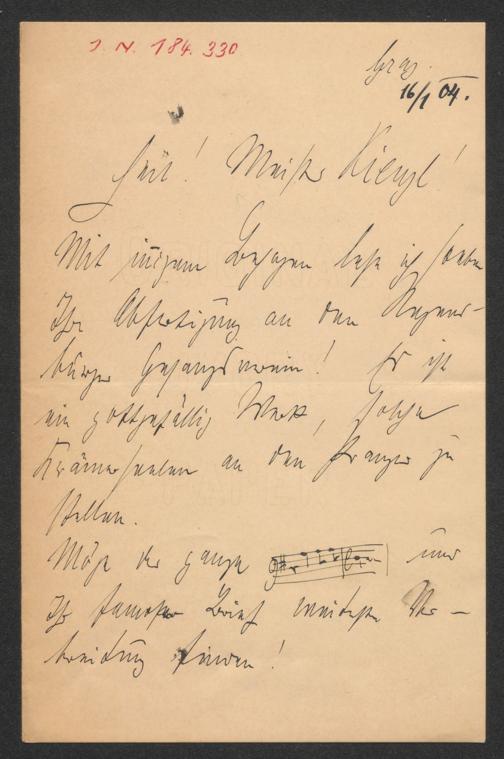 J. N. 184.330
Graz.
16/1 04.
Heil! Meister Kienzl!
Mit innigem Behagen lese ich soeben
Ihre Abfertigung an den Regens-
burger Gesangsverein! Es ist
ein gottgefällig Werk, solche
Krämerseelen an den Pranger zu
stellen.
Möge der ganze und
Ihr famoser Brief weiteste Ver-
breitung finden!